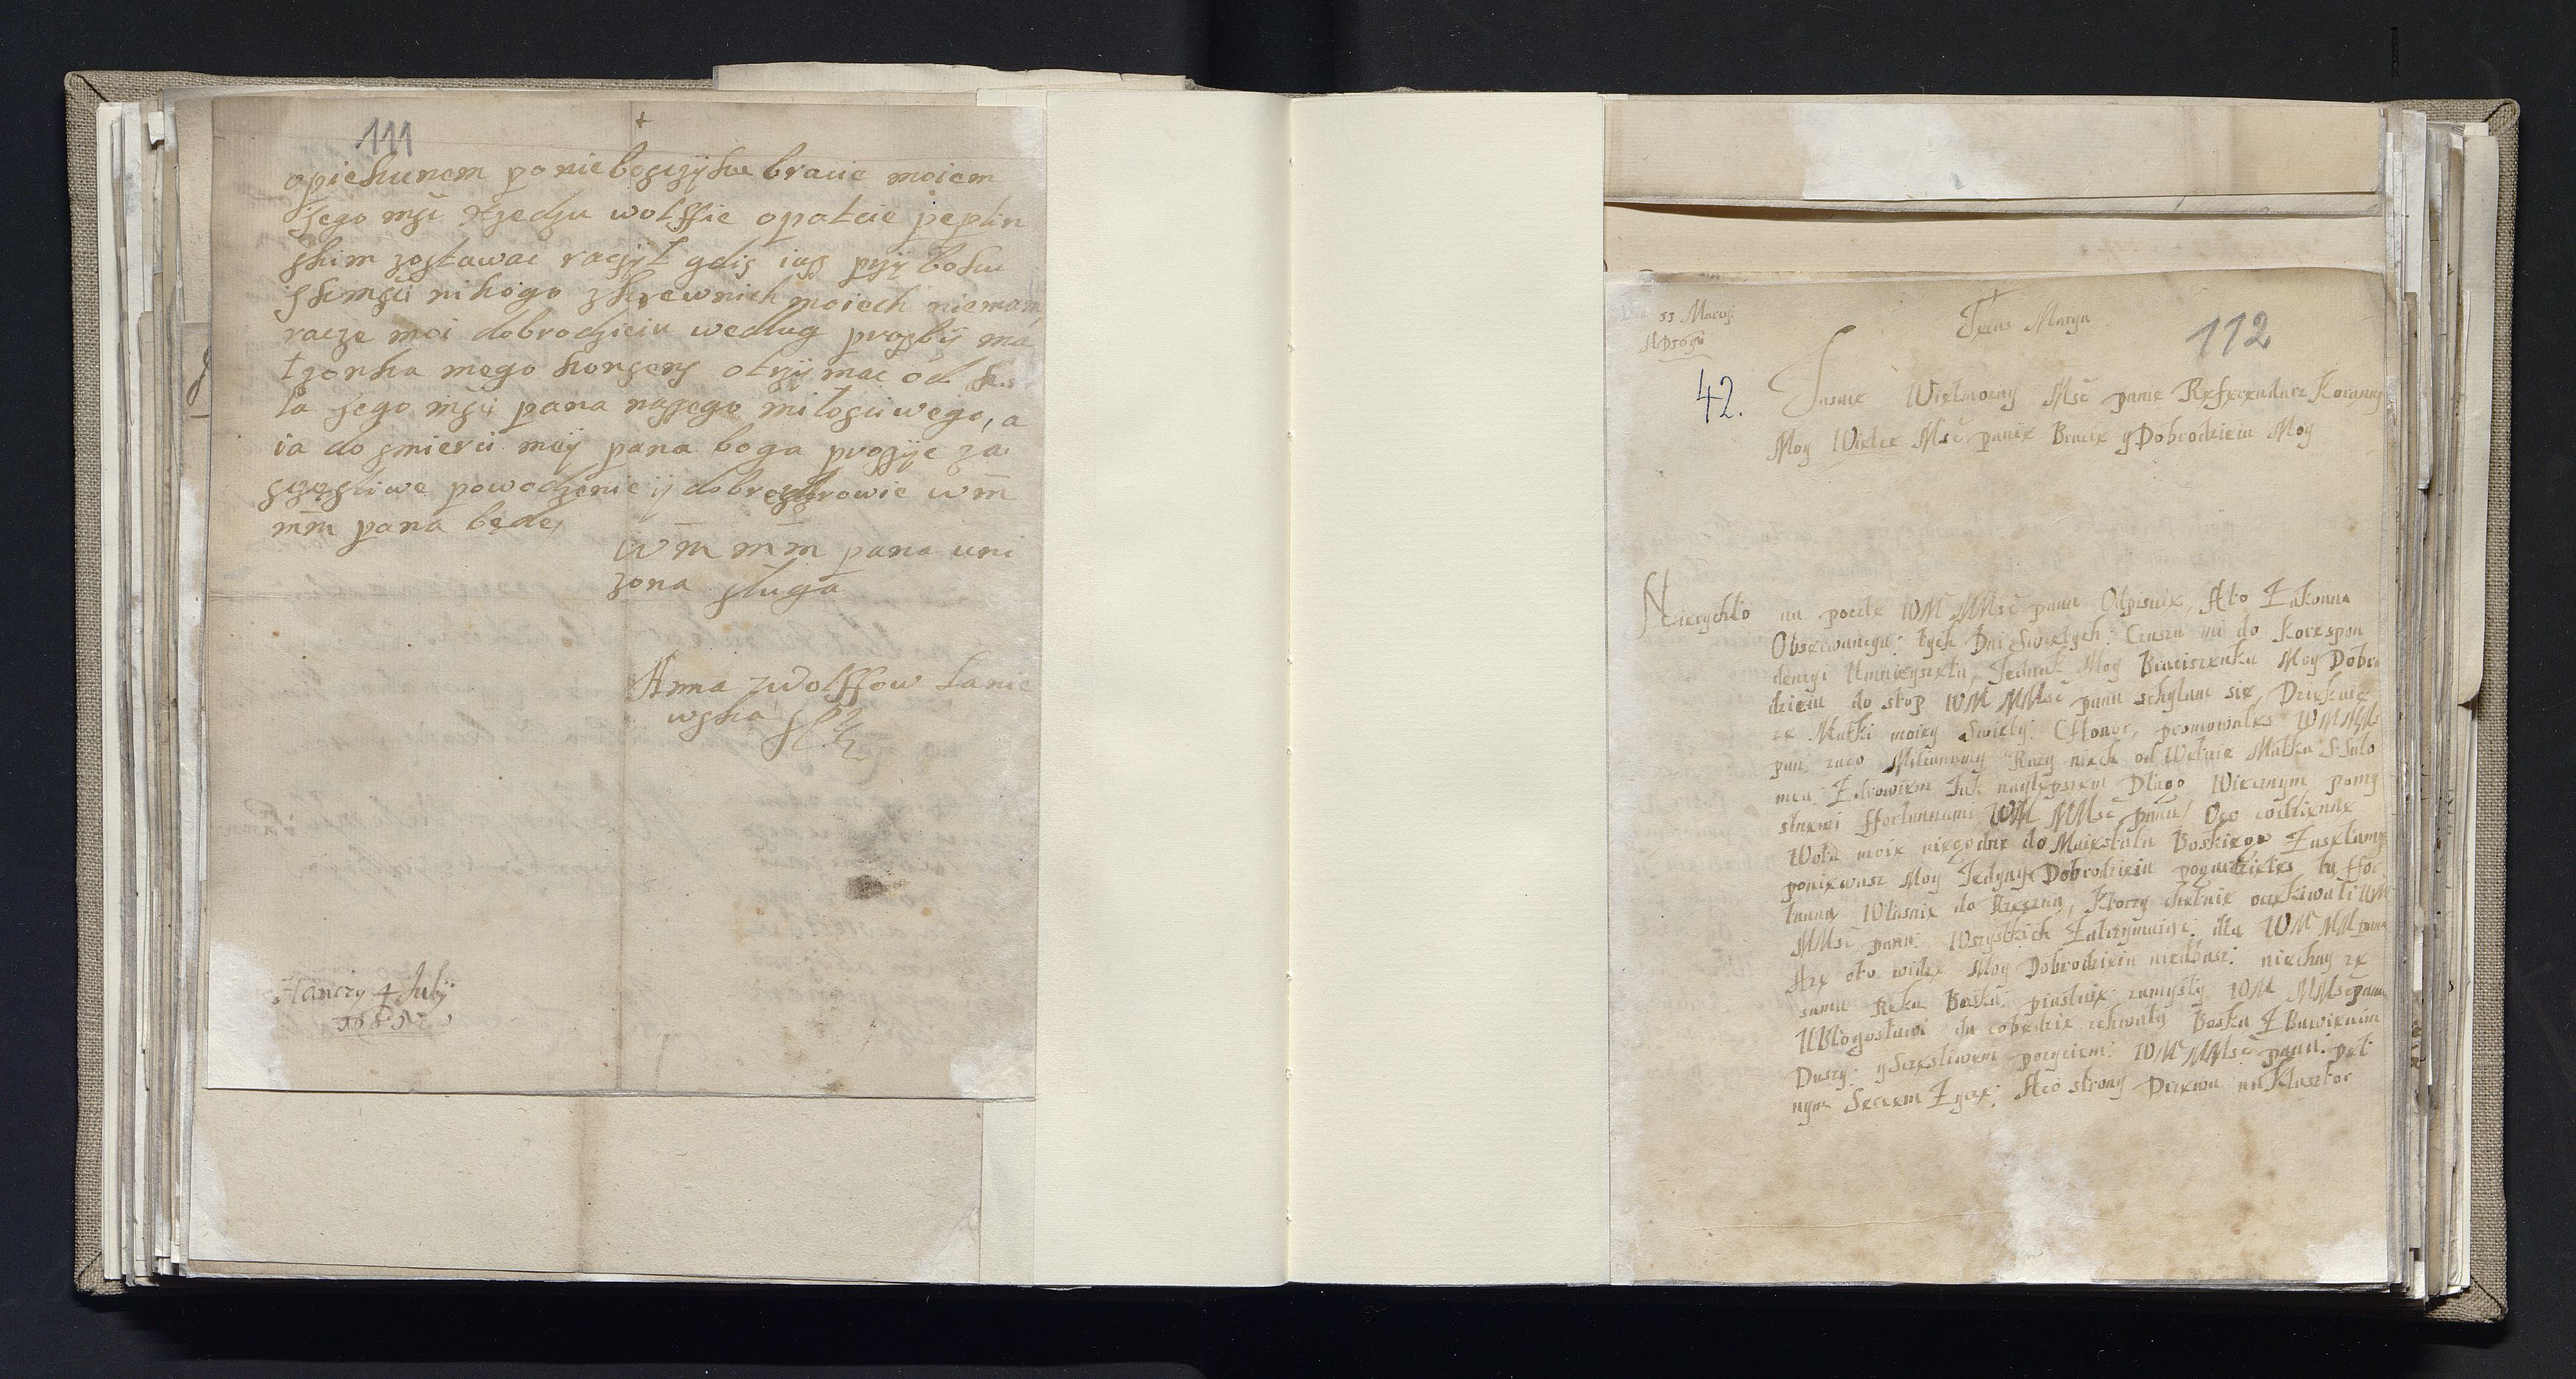 111
+
opiekunem po niebosczyku bracie moiem
Jego msci xzedzu wolffie opatcie peplin
skim zostawac raczył gdis iasz przy boku
ihmsci nikogo z krewnich moiech niemam
racze moi dobrodzieiu według prozbÿ ma
łzonka mego konsens otrzÿmac od kro
la Jego msci pana naszego miłosciwego, a
ia do smierci meÿ pana boga proszÿc za
sczęsliwe powodzenie ÿ dobre zdrowie wm̄
mm̄ pana będę,
Wm̄ mm̄ pana uni
zona sługa
Anna z Wolffow Lanie
wska
4 Julÿ
112
Jezus Marya
42.
Jasnie Wielmozny Msć panie Referendarz Koronny
Moy Wielce Msć panie Bracie y Dobrodzieiu Moy
Nierychło na poczte WM MMsć pana Odpisuie, Ato Zakonna
Obserwancya: tych Dni Swiętych: Czasu mi do Korespon
dencyi Umnieyszeła, Jednak Moy Braciszenku Moy Dobro
dzieiu do stop WM MMsć pana schylam się, Dziekuię
ze Matki moiey Swięty: Honor, promowałes WM MMs
pan: zaco Miłianowy Razy niech od Matka S Salo
mea: Zdrowiem Jak naylepszem Długo Wiecznym pomy
slnemi ffortunnami WM MMsć pana/ Oco codzienne
Wota moie niegodne do Maiestatu Boskiego Zasełam
poniewasz Moy Jedyny Dobrodzieiu ta ffor
tunny Własnie do Rzeszna, Ktorzy chetnie oczekiwali WM
MMsć pana: Wszystkich Zatrzymuięc: dla WM MM pana
Aze oto widze Moy Dobrodzieiu niedbasz: niechay ze
sama Reka Boska: piastuie zamysły WM MMsć pana
UBłogosławi da cobedzie zchwały Boska Z Bawieniem
Duszy: y Szczesliwem pozyciem: WM MMsć pana: peł
nym Sercem Zycze: Aco strony Drzewa na Klasztor